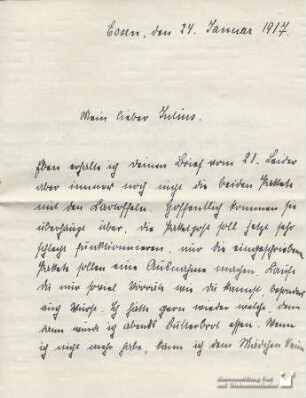 Essen, den 24. Januar 1917.
Mein lieber Julius.
Eben erhalte ich deinen Brief vom 21. Leider
aber immer noch nicht die beiden Pakete
mit den Kartoffeln. Hoffentlich kommen sie
überhaupt über. Die Paketpost soll jetzt sehr
schlecht funktionieren, nur die eingeschriebenen
Pakete sollen eine Ausnahme machen. Kaufe
du nur soviel Vorräte wie du kannst, besonders
auch Würste. Ich hätte gern wieder welche, denn
dann würde ich abends Butterbrot essen. Wenn
ich nicht mehr habe, kann ich dem Mädchen kein